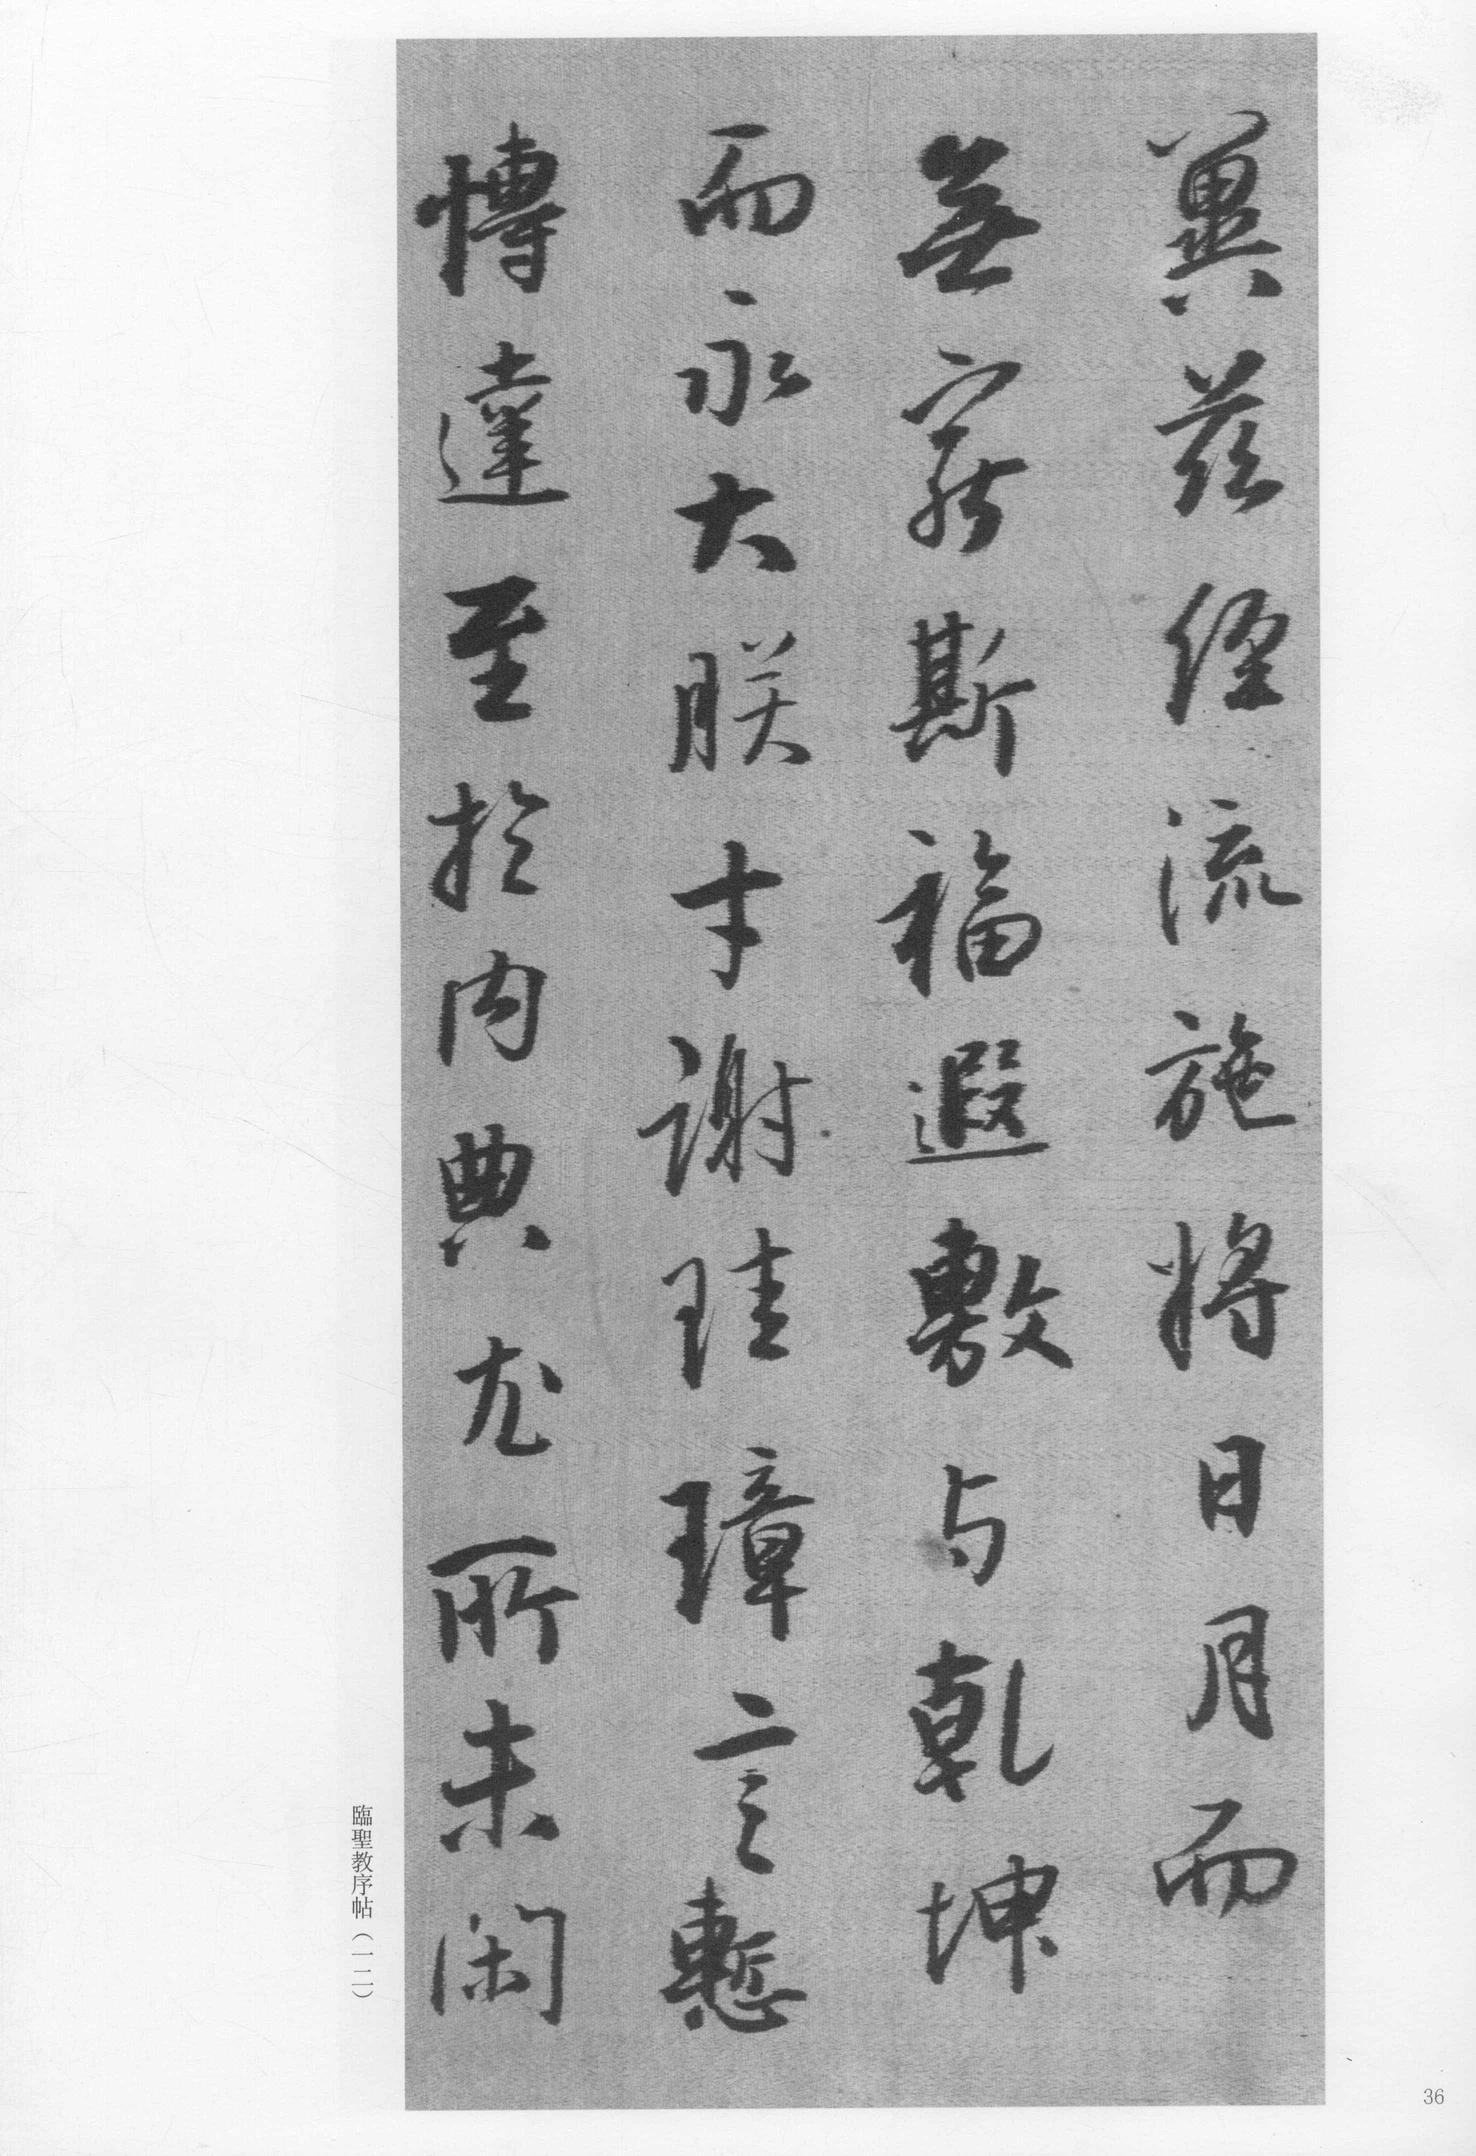 冀茲經流施將日月而
無窮斯福遐敷与乾坤
而永大朕才謝珪璋言慙
博達至於内典尤所未閑
臨聖教序帖（一二）
36